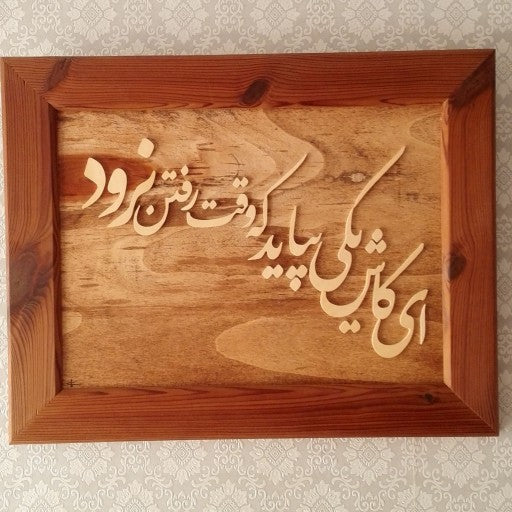 ای کاش یکی بیاید که وقت رفتن نرود